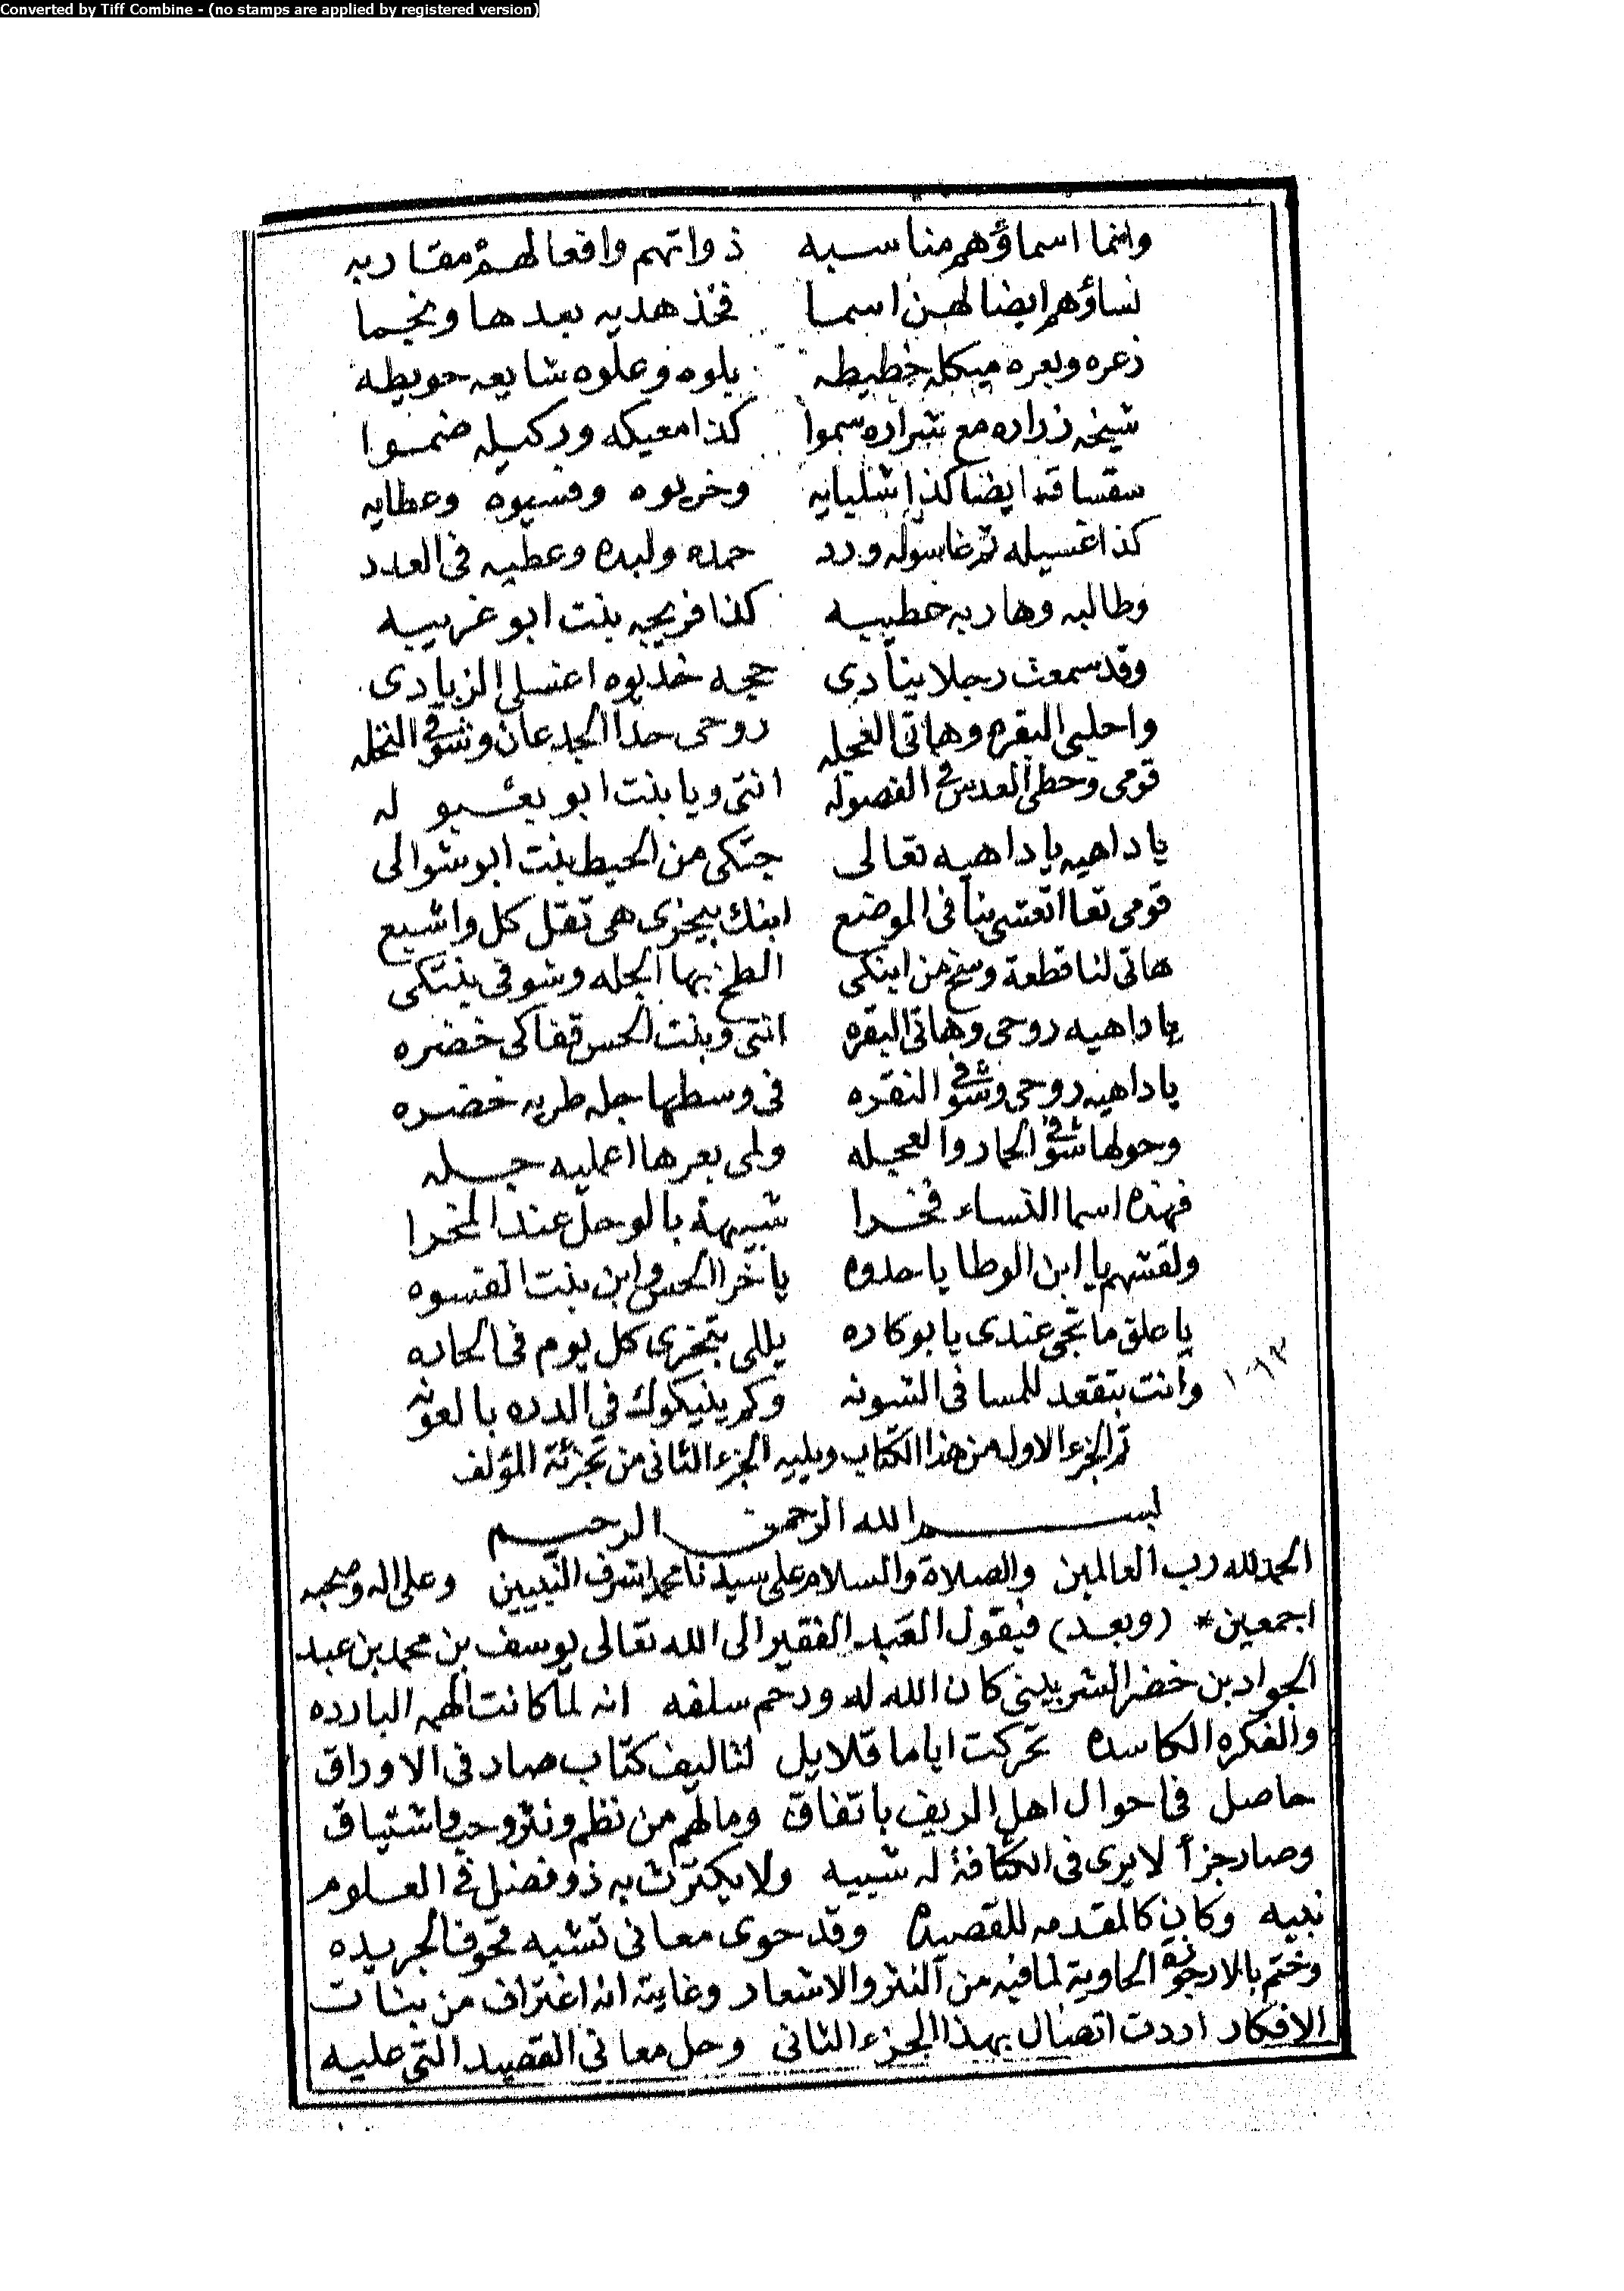 Converted by Tiff Combine - (no stamps are applied by registered version)
وانما اسماؤهم مناسبه ذواتهم وافعالهم مقاربه
نساؤهم ايضا لهن اسما فخذ هديه بعدها ونجما
زعره وبعره ميكله خطيطه يلوه وعلوه شايعه حويطه
شيخه زراره مع شراره سموا كذا معيكه وركيله ضموا
سقساقه ايضا كذا شليايه وخريوه وفسيوه وعطايه
كذا غسيله ثم غاسوله ورد حمده ولبده وعطيه فى العدد
وطالبه وهاربه حطيبه كذا فريجيه بنت ابو غريبه
وقد سمعت رجلا ينادى حجه خديوه اغسلى الزيادى
واحلبى البقره وهاتى العجله روحى حدا الجدعان وشوفى النخله
قومى وحطى العدس فى القصوله انتى ويا بنت ابو بعشبو له
يا داهيه يا داهيه تعالى جتكى من الحيط بنت ابو شوالى
قومى تعا اتعشى بنا فى الموضع ابنك بيخرى هى تقل كل واشبع
هاتى لنا قطعة وسخ من ابنكى الطخ بها الجله وشوفى بنتكى
يا داهيه روحى وهاتى البقره انتى وبنت الحس قفاكى خضره
يا داهيه روحى وشوفى النقره فى وسطها جله طريه خضره
وحولها شوفى الحمار والعجله ولمى بعرها اعمليه جله
فهذه اسما النساء فخرا شبيهة بالوحل عند المخرا
ولقشهم يا ابن الوطا يا حدوه يا خرا الحس وابن بنت القسوه
يا علق ما تجى عندى يا بو كاره يللى بتخرى كل يوم فى الحاره
وانت بتقعد للمسا فى الشونه وكم ينيكوك فى الدره بالعونه
١٠٦٣
تم الجزء الاول من هذا الكتاب ويليه الجزء الثانى من تجزئة المؤلف
بسم الله الرحمن الرحيم
الحمد لله رب العالمين والصلاة والسلام على سيدنا محمد اشرف النبيين وعلى اله وصحبه
اجمعين * (وبعد) فيقول العبد الفقير الى الله تعالى يوسف بن محمد بن عبد
الجواد بن خضر الشربينى كان الله له ورحم سلفه انه لما كانت الهمه البارده
والفكره الكاسده تحركت اياما قلايل لتاليف كتاب صار فى الاوراق
حاصل فى احوال اهل الريف باتفاق ومالهم من نظم ونثر وحب واشتياق
وصار جزأ لا يرى فى الكثافة له شبيه ولا يكترث به ذو فضل فى العلوم
نبيه وكان كالمقدمه للقصيده وقد حوى معانى تشبه قحوف الجريده
وختم بالارجوزة الحاوية لما فيه من النثر والاشعار وغايته انه اغتراف من بنات
الافكار اردت اتصال بهذا الجزء الثانى وحل معانى القصيد التى عليه